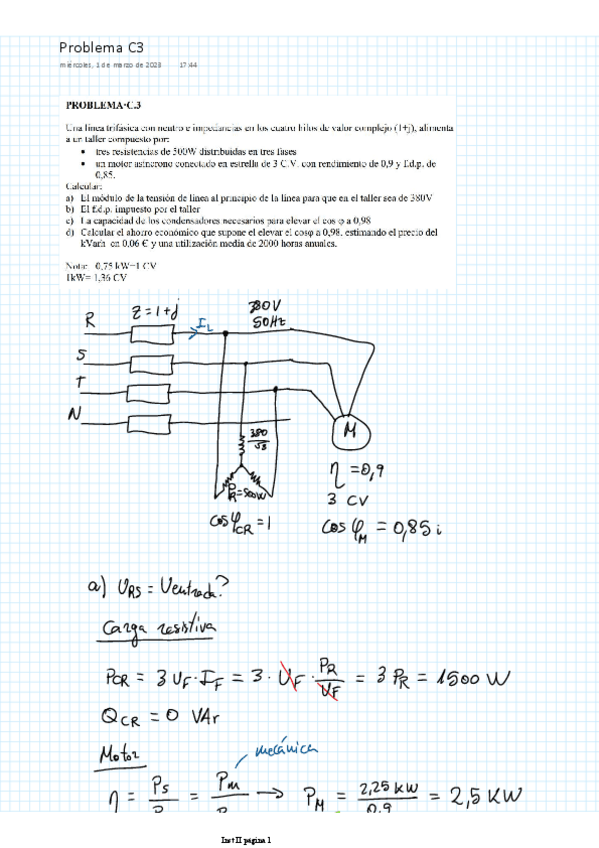 Problema C3
miércoles, 1 de marzo de 2023 17:44
PROBLEMA-C.3
Una línea trifásica con neutro e impedancias en los cuatro hilos de valor complejo (1+j), alimenta
a un taller compuesto por:
• tres resistencias de 500W distribuidas en tres fases
• un motor asíncrono conectado en estrella de 3 C.V. con rendimiento de 0,9 y f.d.p. de
0,85.
Calcular:
a) El módulo de la tensión de línea al principio de la línea para que en el taller sea de 380V
b) El f.d.p. impuesto por el taller
c) La capacidad de los condensadores necesarios para elevar el cos φ a 0,98
d) Calcular el ahorro económico que supone el elevar el cosφ a 0,98, estimando el precio del
kVarh en 0,06 € y una utilización media de 2000 horas anuales.
Nota: 0,75 kW=1 CV
1kW= 1,36 CV
R Z=1+j I_L 380V
50Hz
S
T
N
380/√3
M
P_R=500W
η =0,9
3 CV
cosφ_CR = 1 cosφ_M = 0,85 i
a) U_RS = Uentrada?
Carga resistiva
P_CR = 3 U_F · I_F = 3 · U_F · P_R/U_F = 3 P_R = 1500 W
Q_CR = 0 VAr
Motor mecánica
η = Ps = Pm → P_M = 2,25 kW/0,9 = 2,5 KW
Inst II página 1